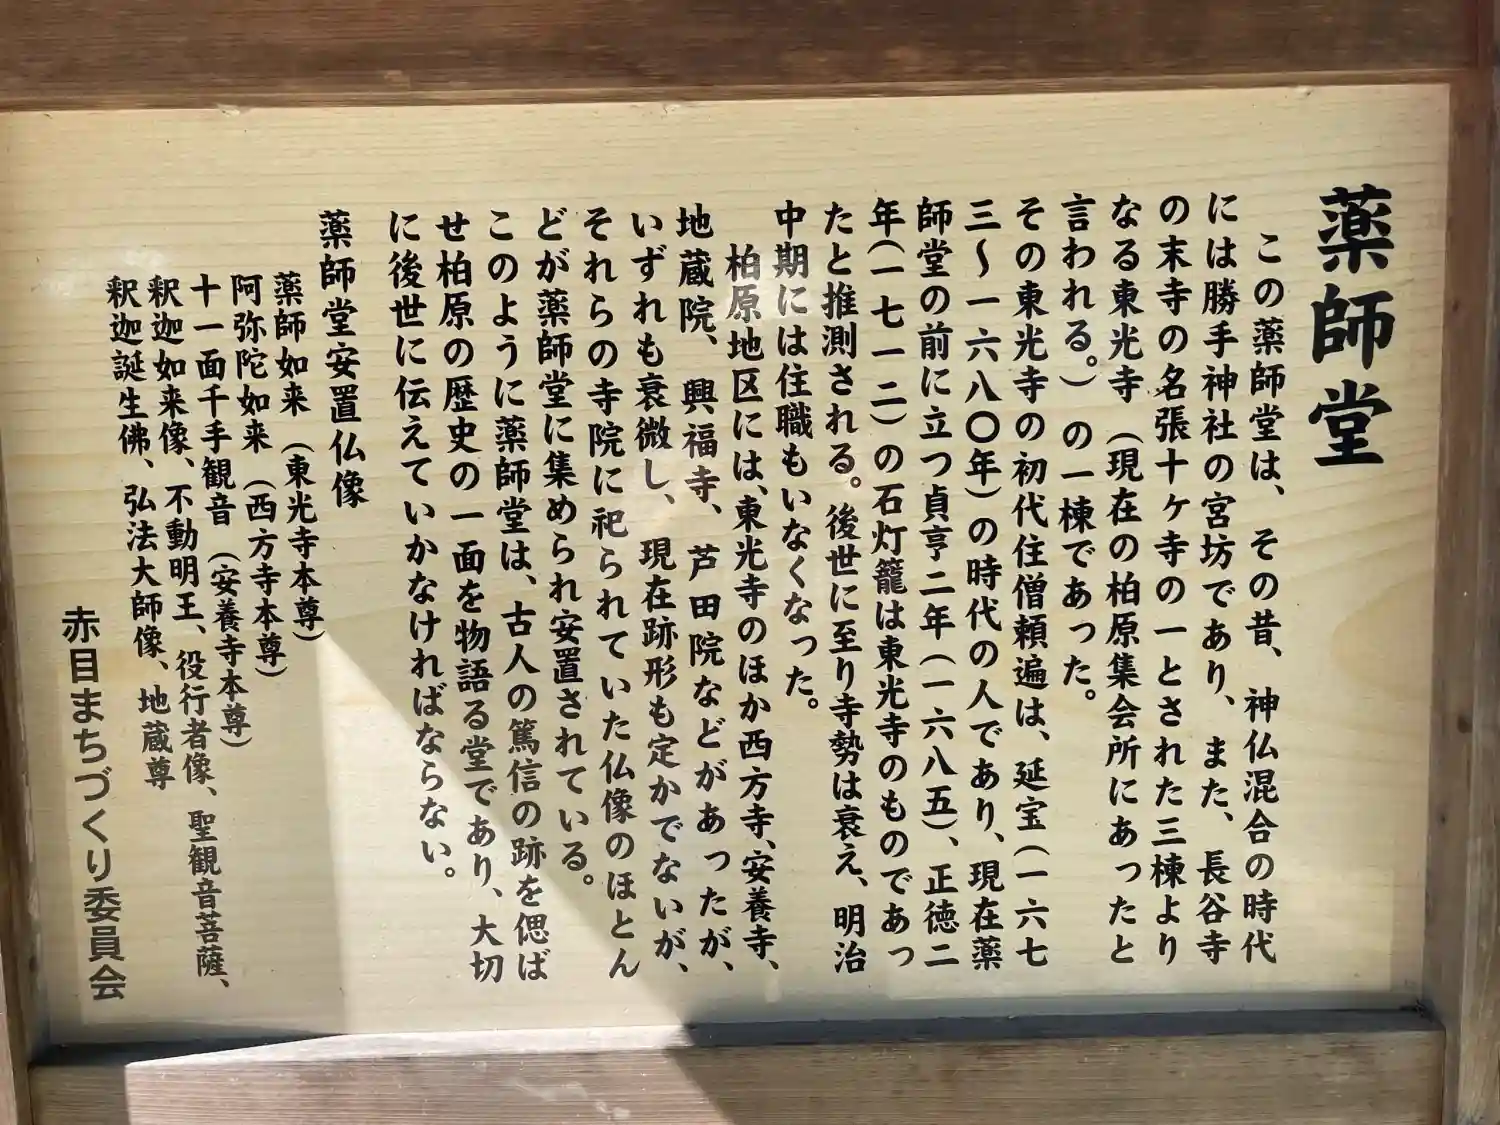 薬師堂
この薬師堂は、その昔、神仏混合の時代
には勝手神社の宮坊であり、また、長谷寺
の末寺の名張十ヶ寺の一とされた三棟より
なる東光寺（現在の柏原集会所にあったと
言われる。）の一棟であった。
その東光寺の初代住僧頼遍は、延宝（一六七
三〜一六八〇年）の時代の人であり、現在薬
師堂の前に立つ貞亨二年（一六八五）、正徳二
年（一七一二）の石灯籠は東光寺のものであっ
たと推測される。後世に至り寺勢は衰え、明治
中期には住職もいなくなった。
柏原地区には、東光寺のほか西方寺、安養寺、
地蔵院、興福寺、芦田院などがあったが、
いずれも衰微し、現在跡形も定かでないが、
それらの寺院に祀られていた仏像のほとん
どが薬師堂に集められ安置されている。
このように薬師堂は、古人の篤信の跡を偲ば
せ柏原の歴史の一面を物語る堂であり、大切
に後世に伝えていかなければならない。
薬師堂安置仏像
薬師如来（東光寺本尊）
阿弥陀如来（西方寺本尊）
十一面千手観音（安養寺本尊）
釈迦如来像、不動明王、役行者像、聖観音菩薩、
釈迦誕生佛、弘法大師像、地蔵尊
赤目まちづくり委員会